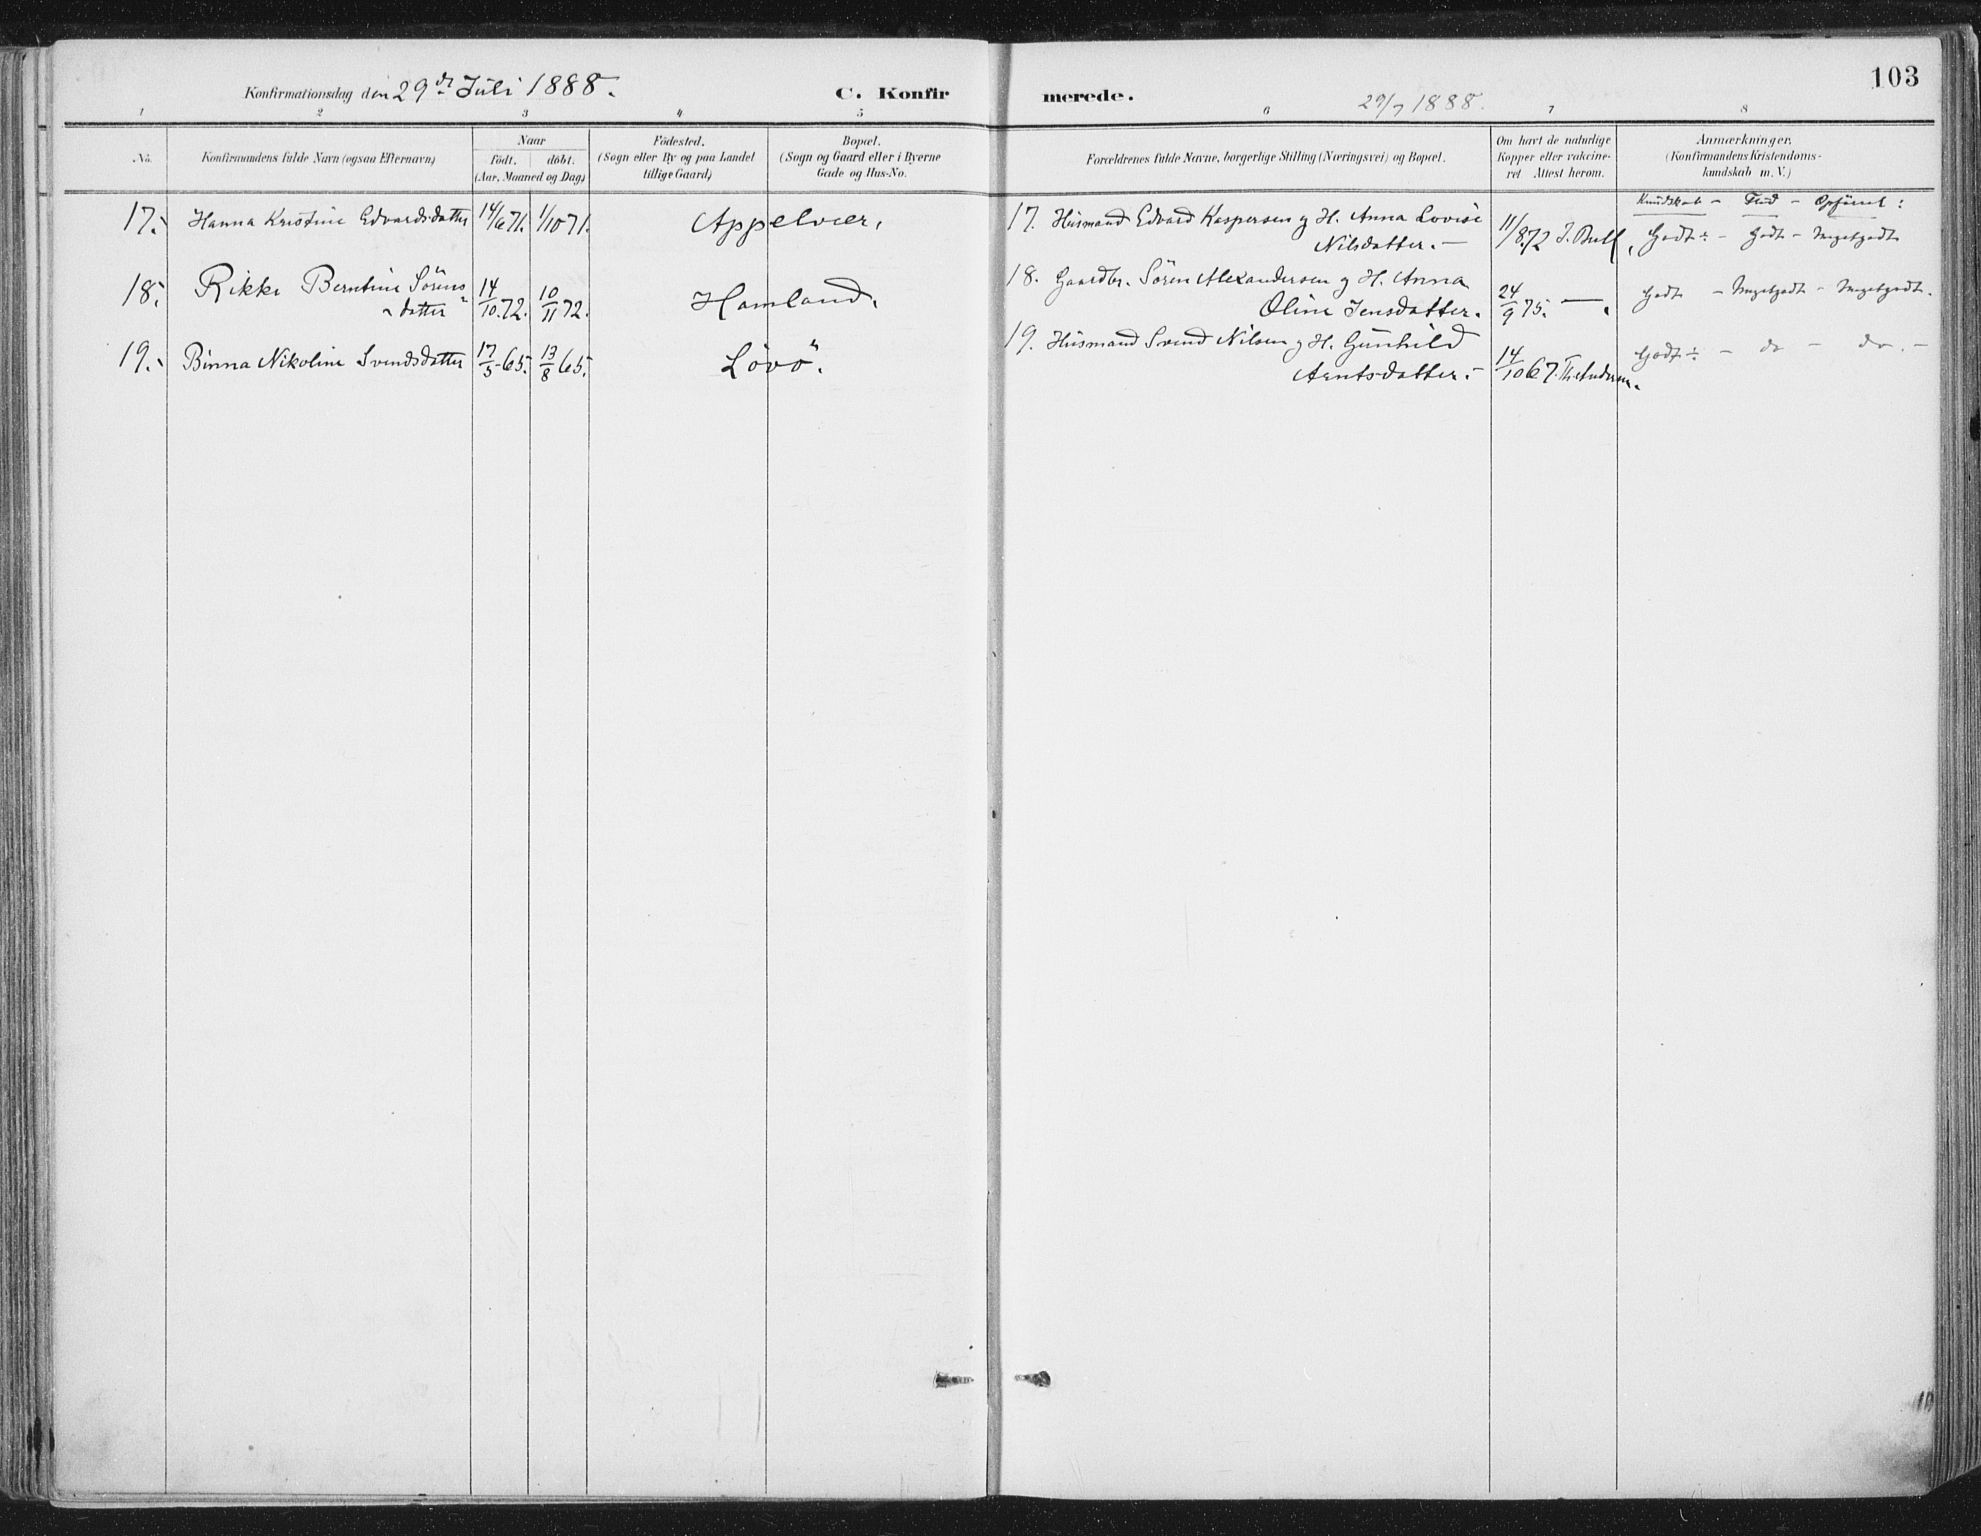 Konfirmationsdag den 29de Juli 1888.
C. Konfir
merede.
29/7 1888.
103
1 2 3 4 5 6 7 8
No.
Konfirmandens fulde Navn (ogsaa Efternavn)
Naar
födt. döbt.
(Aar, Maaned og Dag)
Födested.
(Sogn eller By og paa Landet
tillige Gaard)
Bopæl.
(Sogn og Gaard eller i Byerne
Gade og Hus-No.
Forældrenes fulde Navne, borgerlige Stilling (Næringsvei) og Bopæl.
Om havt de naturlige
Kopper eller vakcine-
ret. Attest herom.
Anmærkninger,
(Konfirmandens Kristendoms-
kundskab m. V.)
Kundskab - Flid - Opförsel:
17. Hanna Kristine Edvardsdatter 14/6 71. 1/10 71. Appelvær. 17. Husmand Edvard Kaspersen og H. Anna Lovise
Nilsdatter. - 11/8 72 J. Bull. Godt÷ - Godt - Megetgodt
18. Rikke Berntine Sörens-
datter 14/10 72. 10/11 72. Hamland. 18. Gaardbr. Sören Alexandersen og H. Anna
Oline Jensdatter. 24/9 75. — Godt - Megetgodt - Megetgodt.
19. Binna Nikoline Svendsdatter 17/5 65. 13/8 65. Lövö. 19. Husmand Svend Nilsen og H. Gunhild
Arntsdatter. - 14/10 67. Th. Andersen. Godt÷ - do - do. -